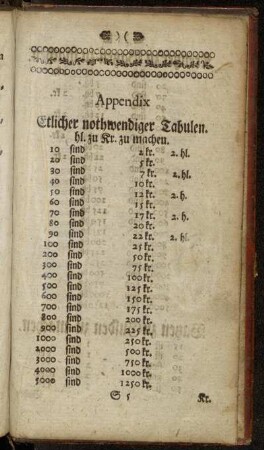 Appendix
Etlicher nothwendiger Tabulen.
hl. zu Kr. zu machen.
10 sind 2 kr. 2. hl.
20 sind 5 kr.
30 sind 7 kr. 2. hl.
40 sind 10 kr.
50 sind 12 kr. 2. h.
60 sind 15 kr.
70 sind 17 kr. 2. h.
80 sind 20 kr.
90 sind 22 kr. 2. hl
100 sind 25 kr.
200 sind 50 kr.
300 sind 75 kr.
400 sind 100 kr.
500 sind 125 kr.
600 sind 150 kr.
700 sind 175 kr.
800 sind 200 kr.
900 sind 225 kr.
1000 sind 250 kr.
2000 sind 500 kr.
3000 sind 750 kr.
4000 sind 1000 kr.
5000 sind 1250 kr.
S 5 Kr.